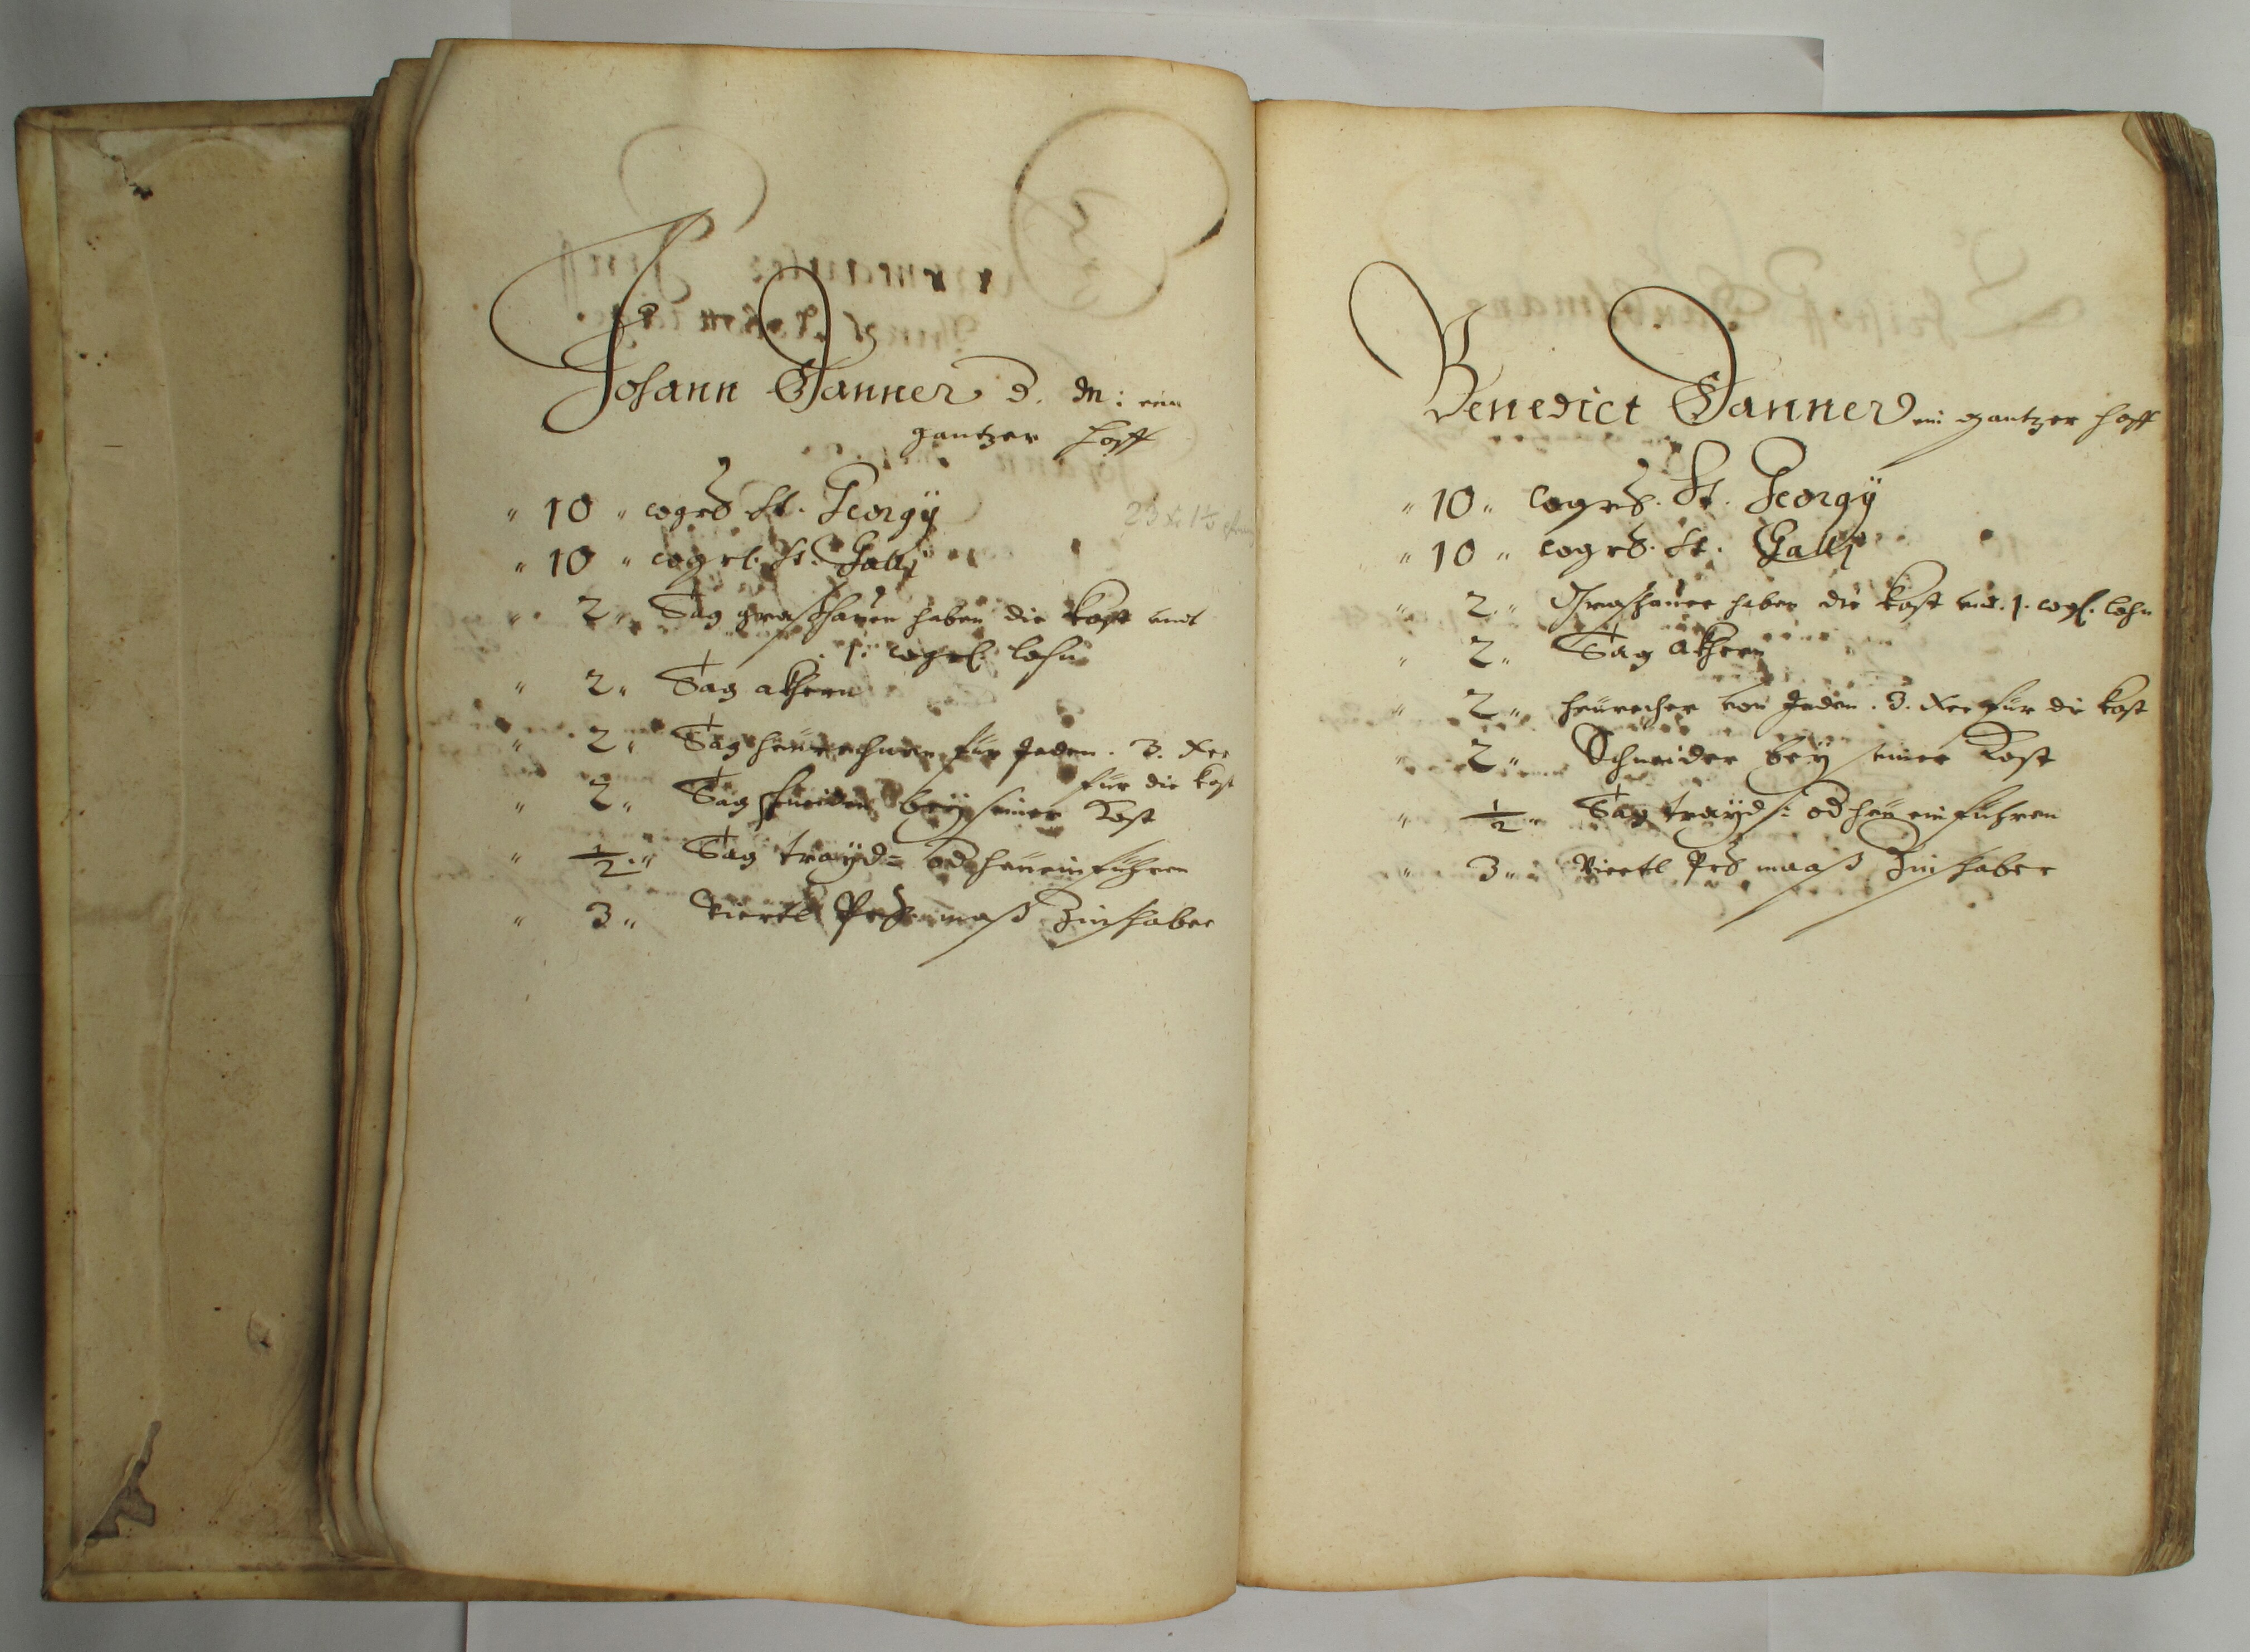 Johann Danner d. M: ein
gantzer Hoff
" 10 " wgrß St. Georgÿ
" 10 " wgrl. St: Gallj
" 2 " Tag graßhauen haben die kost undt
. 1. wgrl. lohn
" 2 " Tag akhern
" 2 " Tag heürechnen für Jeden . 3. Xer
für die kost
" 2 " Tag schneiden beÿ seiner Kost
" 1/2 " Tag traÿd= od heü einführen
" 3 " Viertl maß Zinßhaber
Benedict Danner ein gantzer Hoff
" 10 " wgrß. St. Georgÿ
" 10 " wgrß. St. Gallj
" 2 " Graßhauer haben die kost und . 1. wgl. lohn
" 2 " Tag akhern
" 2 " heürecher von Jeden . 3. Xer für die kost
" 2 " Schneider beÿ seiner Kost
" 1/2 " Tag traÿd: od heü einführen
" 3 " Viertl maaß Zinßhaber